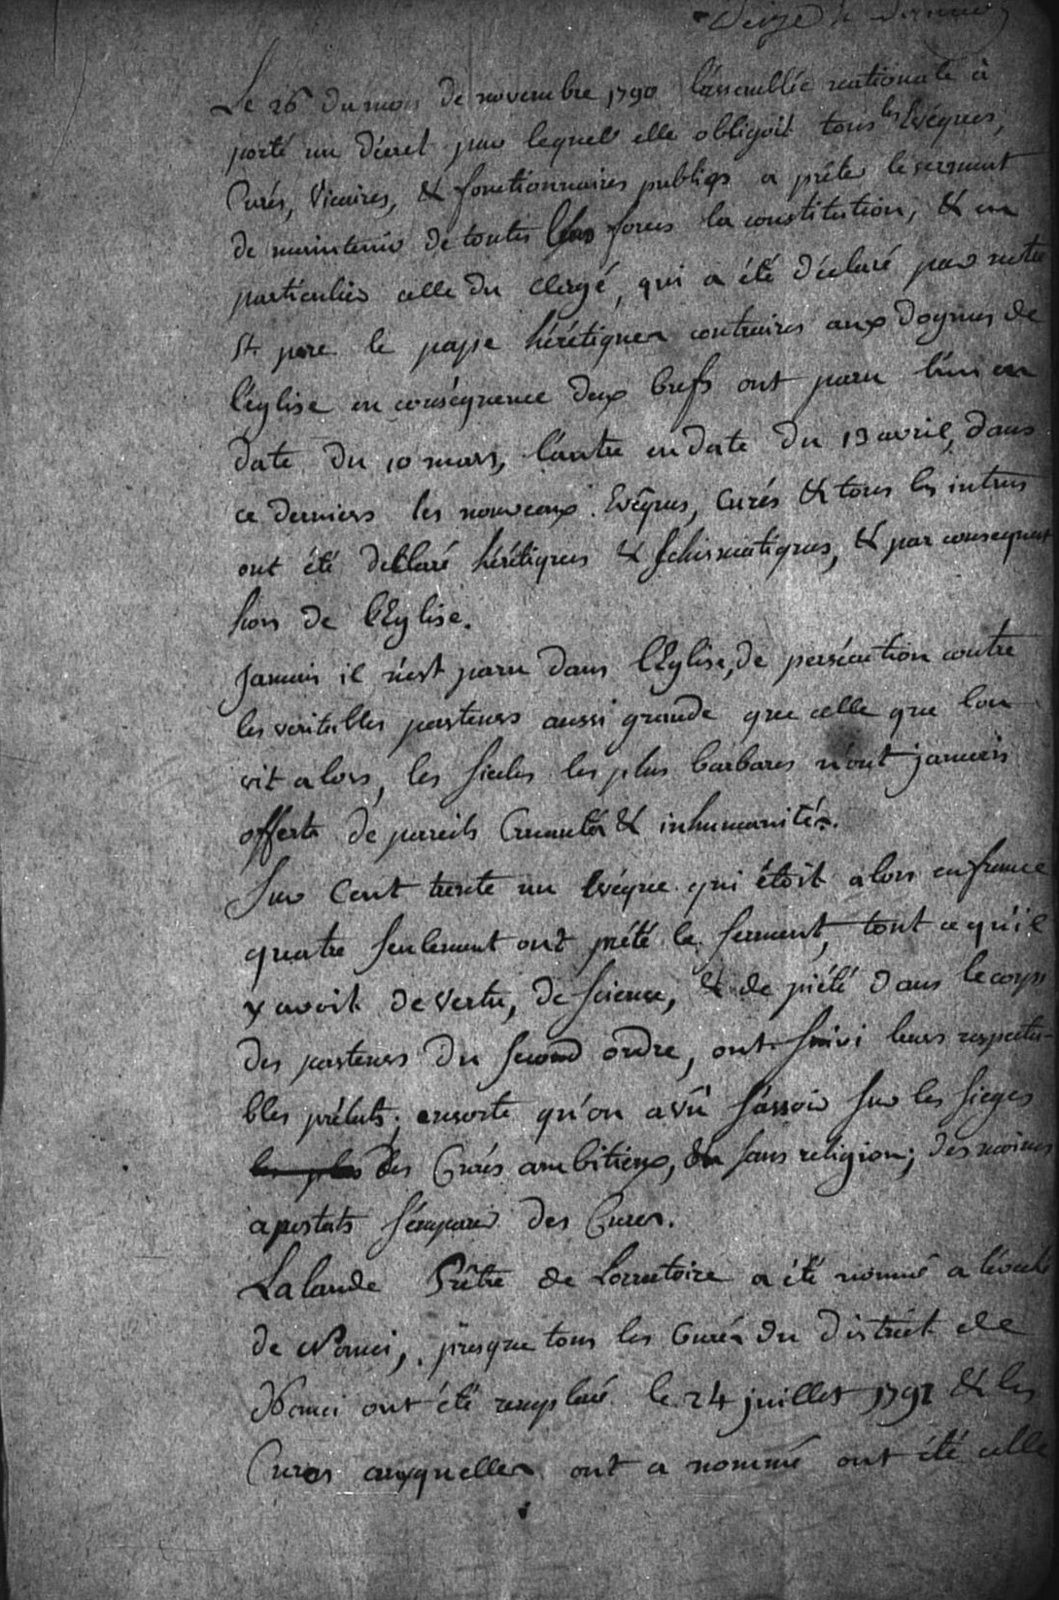 Le 26 du mois de novembre 1790 l'assemblée nationale à
porté un décret par lequel elle obligoit tous les Evéques,
Curés, Vicaires, & fonctionnaires publiqs a préter le serment
de maintenir de toutes leurs forces la constitution, & en
particulier celle du clergé, qui a été déclaré par notre
St. pere le pape hérétique contraires aux dogmes de
l'église en conséquence deux brefs ont paru l'un en
date du 10 mars, l'autre en date du 13 avril, dans
ce derniers les nouveaux Evêques, Curés & tous les intrus
ont été déclaré hérétiques & schismatiques, & par consequent
hors de l'Eglise.
Jamais il n'est paru dans l'Eglise, de persécution contre
les veritables pasteurs aussi grande que celle que l'on
vit alors, les siecles les plus barbares n'ont jamais
offerts de pareils Cruautés & inhumanités.
Sur Cent trente un Evéque qui étoit alors en france
quatre seulement ont prété le serment, tout ce qu'il
y avoit de vertu, de science, & de piété dans le corps
des pasteurs du second ordre, ont suivi leurs respecta-
bles prélats; ensorte qu'on a vû s'assoir sur les sieges
les plus des Curés ambitieux, & sans religion; des moines
apostats s'emparer des Cures.
Lalande Prêtre de Lorratoire a été nommé a l'évêché
de Nanci, presque tous les Curés du district de
Nanci ont été remplacé le 24 juillet 1791 & les
Cures auxquelles ont a nommé ont été celle